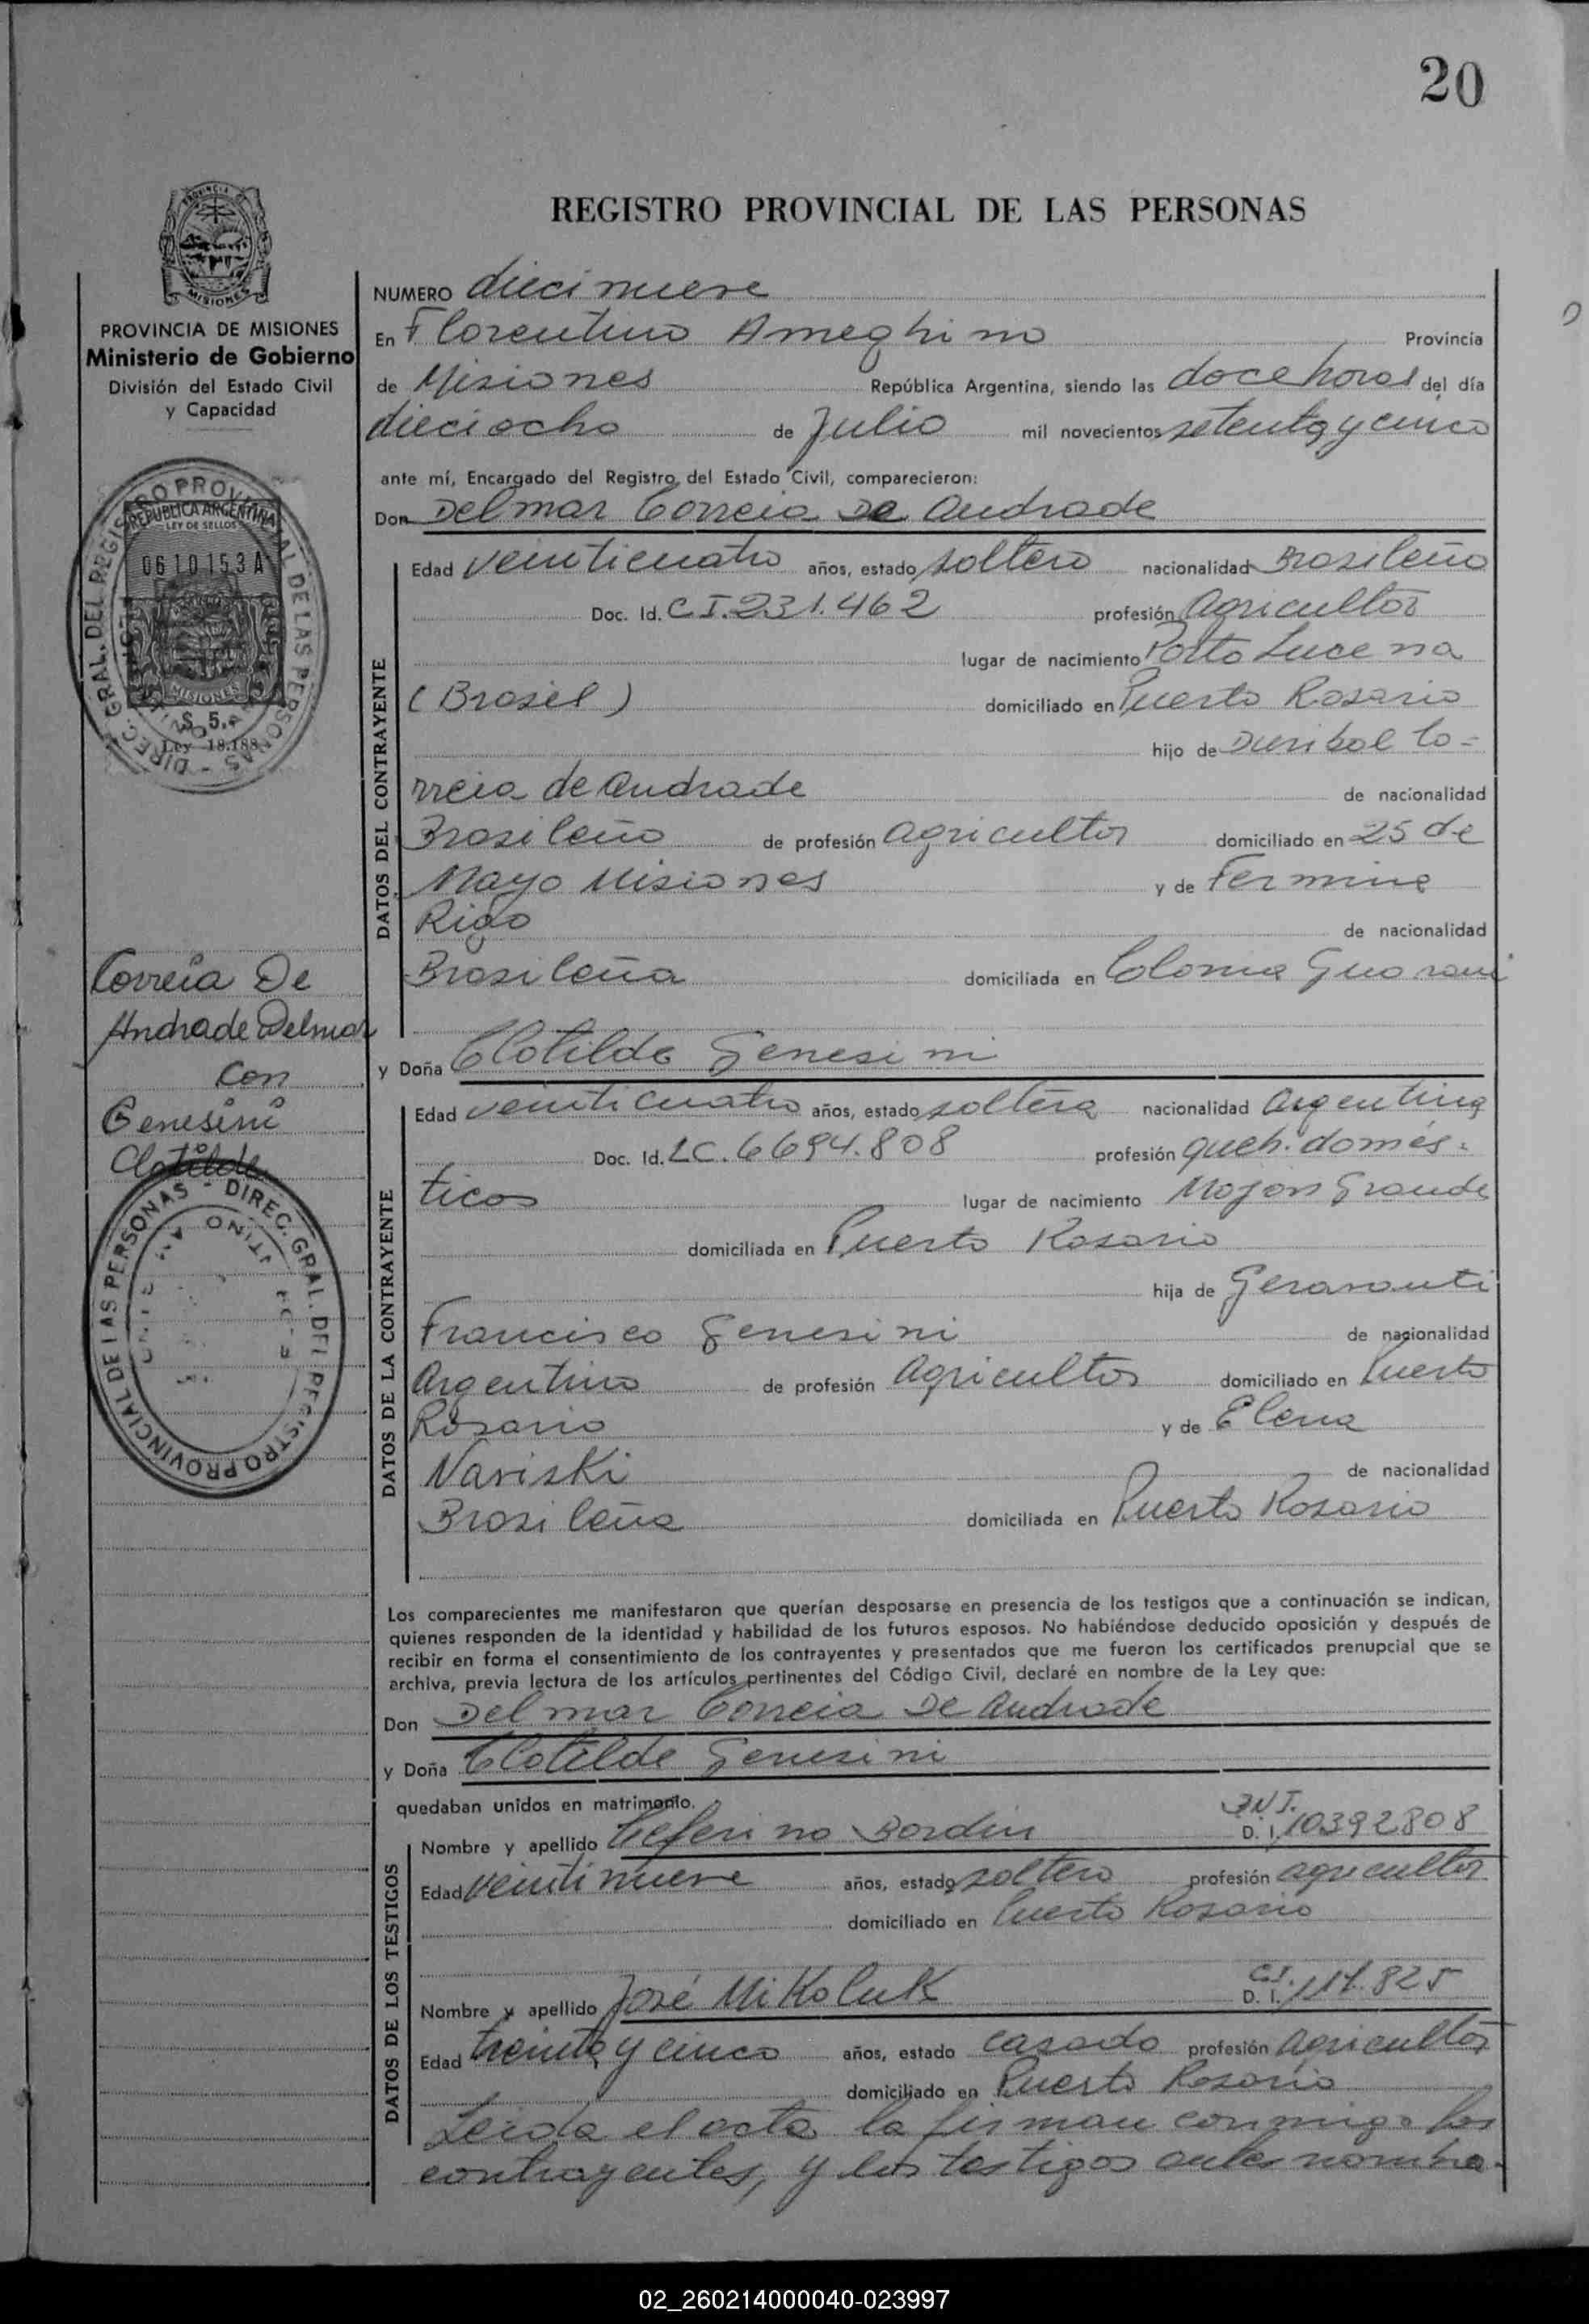 20
REGISTRO PROVINCIAL DE LAS PERSONAS
MISIONES
PROVINCIA DE MISIONES
Ministerio de Gobierno
División del Estado Civil
y Capacidad
NUMERO diecinueve
En Florentino Ameghino Provincia
de Misiones República Argentina, siendo las doce horas del día
dieciocho de Julio mil novecientos setenta y cinco
ante mí, Encargado del Registro del Estado Civil, comparecieron:
Don Delmar Correia De Andrade
REPUBLICA ARGENTINA
LEY DE SELLOS
0610153A
MISIONES
$ 5.-
Ley 18.188
DIREC. GRAL. DEL REGISTRO PROVINCIAL DE LAS PERSONAS
DATOS DEL CONTRAYENTE
Edad veinticuatro años, estado soltero nacionalidad Brasileño
Doc. Id. C I. 231.462 profesión Agricultor
lugar de nacimiento Porto Lucena
(Brasil) domiciliado en Puerto Rosario
hijo de Co=
rreia de Andrade de nacionalidad
Brasileño de profesión agricultor domiciliado en 25 de
Mayo Misiones y de Fermina
Rigo de nacionalidad
Brasileña domiciliada en Colonia Guarani
Correia De
Andrade Delmar
Con
Genesini
Clotilde
y Doña Clotilde Genesini
DATOS DE LA CONTRAYENTE
Edad veinticuatro años, estado soltera nacionalidad Argentina
Doc. Id. LC. 6694.808 profesión queh. domés=
ticos lugar de nacimiento Mojon Grande
domiciliada en Puerto Rosario
hija de
Francisco Genesini de nacionalidad
Argentino de profesión Agricultor domiciliado en Puerto
Rosario y de Elena
Nariski de nacionalidad
Brasileña domiciliada en Puerto Rosario
DIREC. GRAL. DEL REGISTRO PROVINCIAL DE LAS PERSONAS
Los comparecientes me manifestaron que querían desposarse en presencia de los testigos que a continuación se indican,
quienes responden de la identidad y habilidad de los futuros esposos. No habiéndose deducido oposición y después de
recibir en forma el consentimiento de los contrayentes y presentados que me fueron los certificados prenupcial que se
archiva, previa lectura de los artículos pertinentes del Código Civil, declaré en nombre de la Ley que:
Don Delmar Correia De Andrade
y Doña Clotilde Genesini
quedaban unidos en matrimonio.
DATOS DE LOS TESTIGOS
Nombre y apellido Ceferino Bordin D. I. DNI. 10392808
Edad veintinueve años, estado soltero profesión agricultor
domiciliado en Puerto Rosario
Nombre y apellido José Mikoluk D. I. C.I. 111.825
Edad treinta y cinco años, estado casado profesión Agricultor
domiciliado en Puerto Rosario
Leida el acta la firman conmigo los
contrayentes, y los testigos antes nombra-
02_260214000040-023997